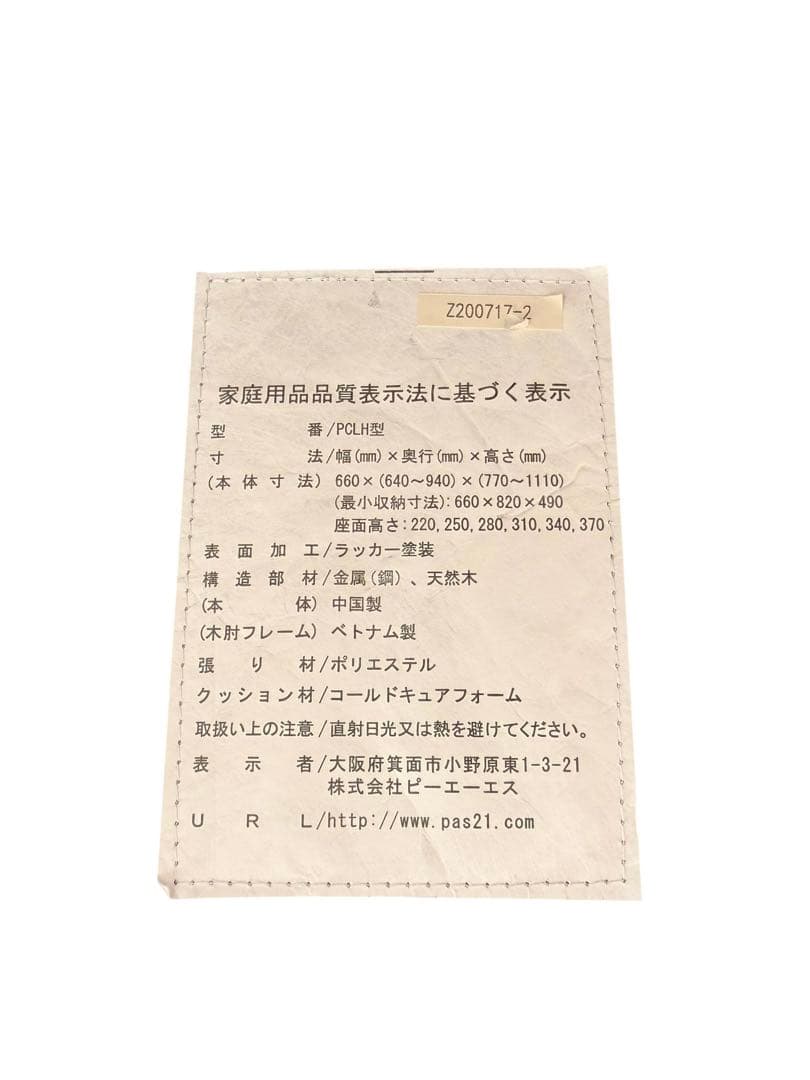 Z200717-2
家庭用品品質表示法に基づく表示
型番/PCLH型
寸法/幅(mm)×奥行(mm)×高さ(mm)
(本体寸法) 660×(640〜940)×(770〜1110)
(最小収納寸法):660×820×490
座面高さ:220,250,280,310,340,370
表面加工/ラッカー塗装
構造部材/金属(鋼)、天然木
(本体) 中国製
(木肘フレーム) ベトナム製
張り材/ポリエステル
クッション材/コールドキュアフォーム
取扱い上の注意/直射日光又は熱を避けてください。
表示者/大阪府箕面市小野原東1-3-21
株式会社ピーエーエス
URL/http://www.pas21.com